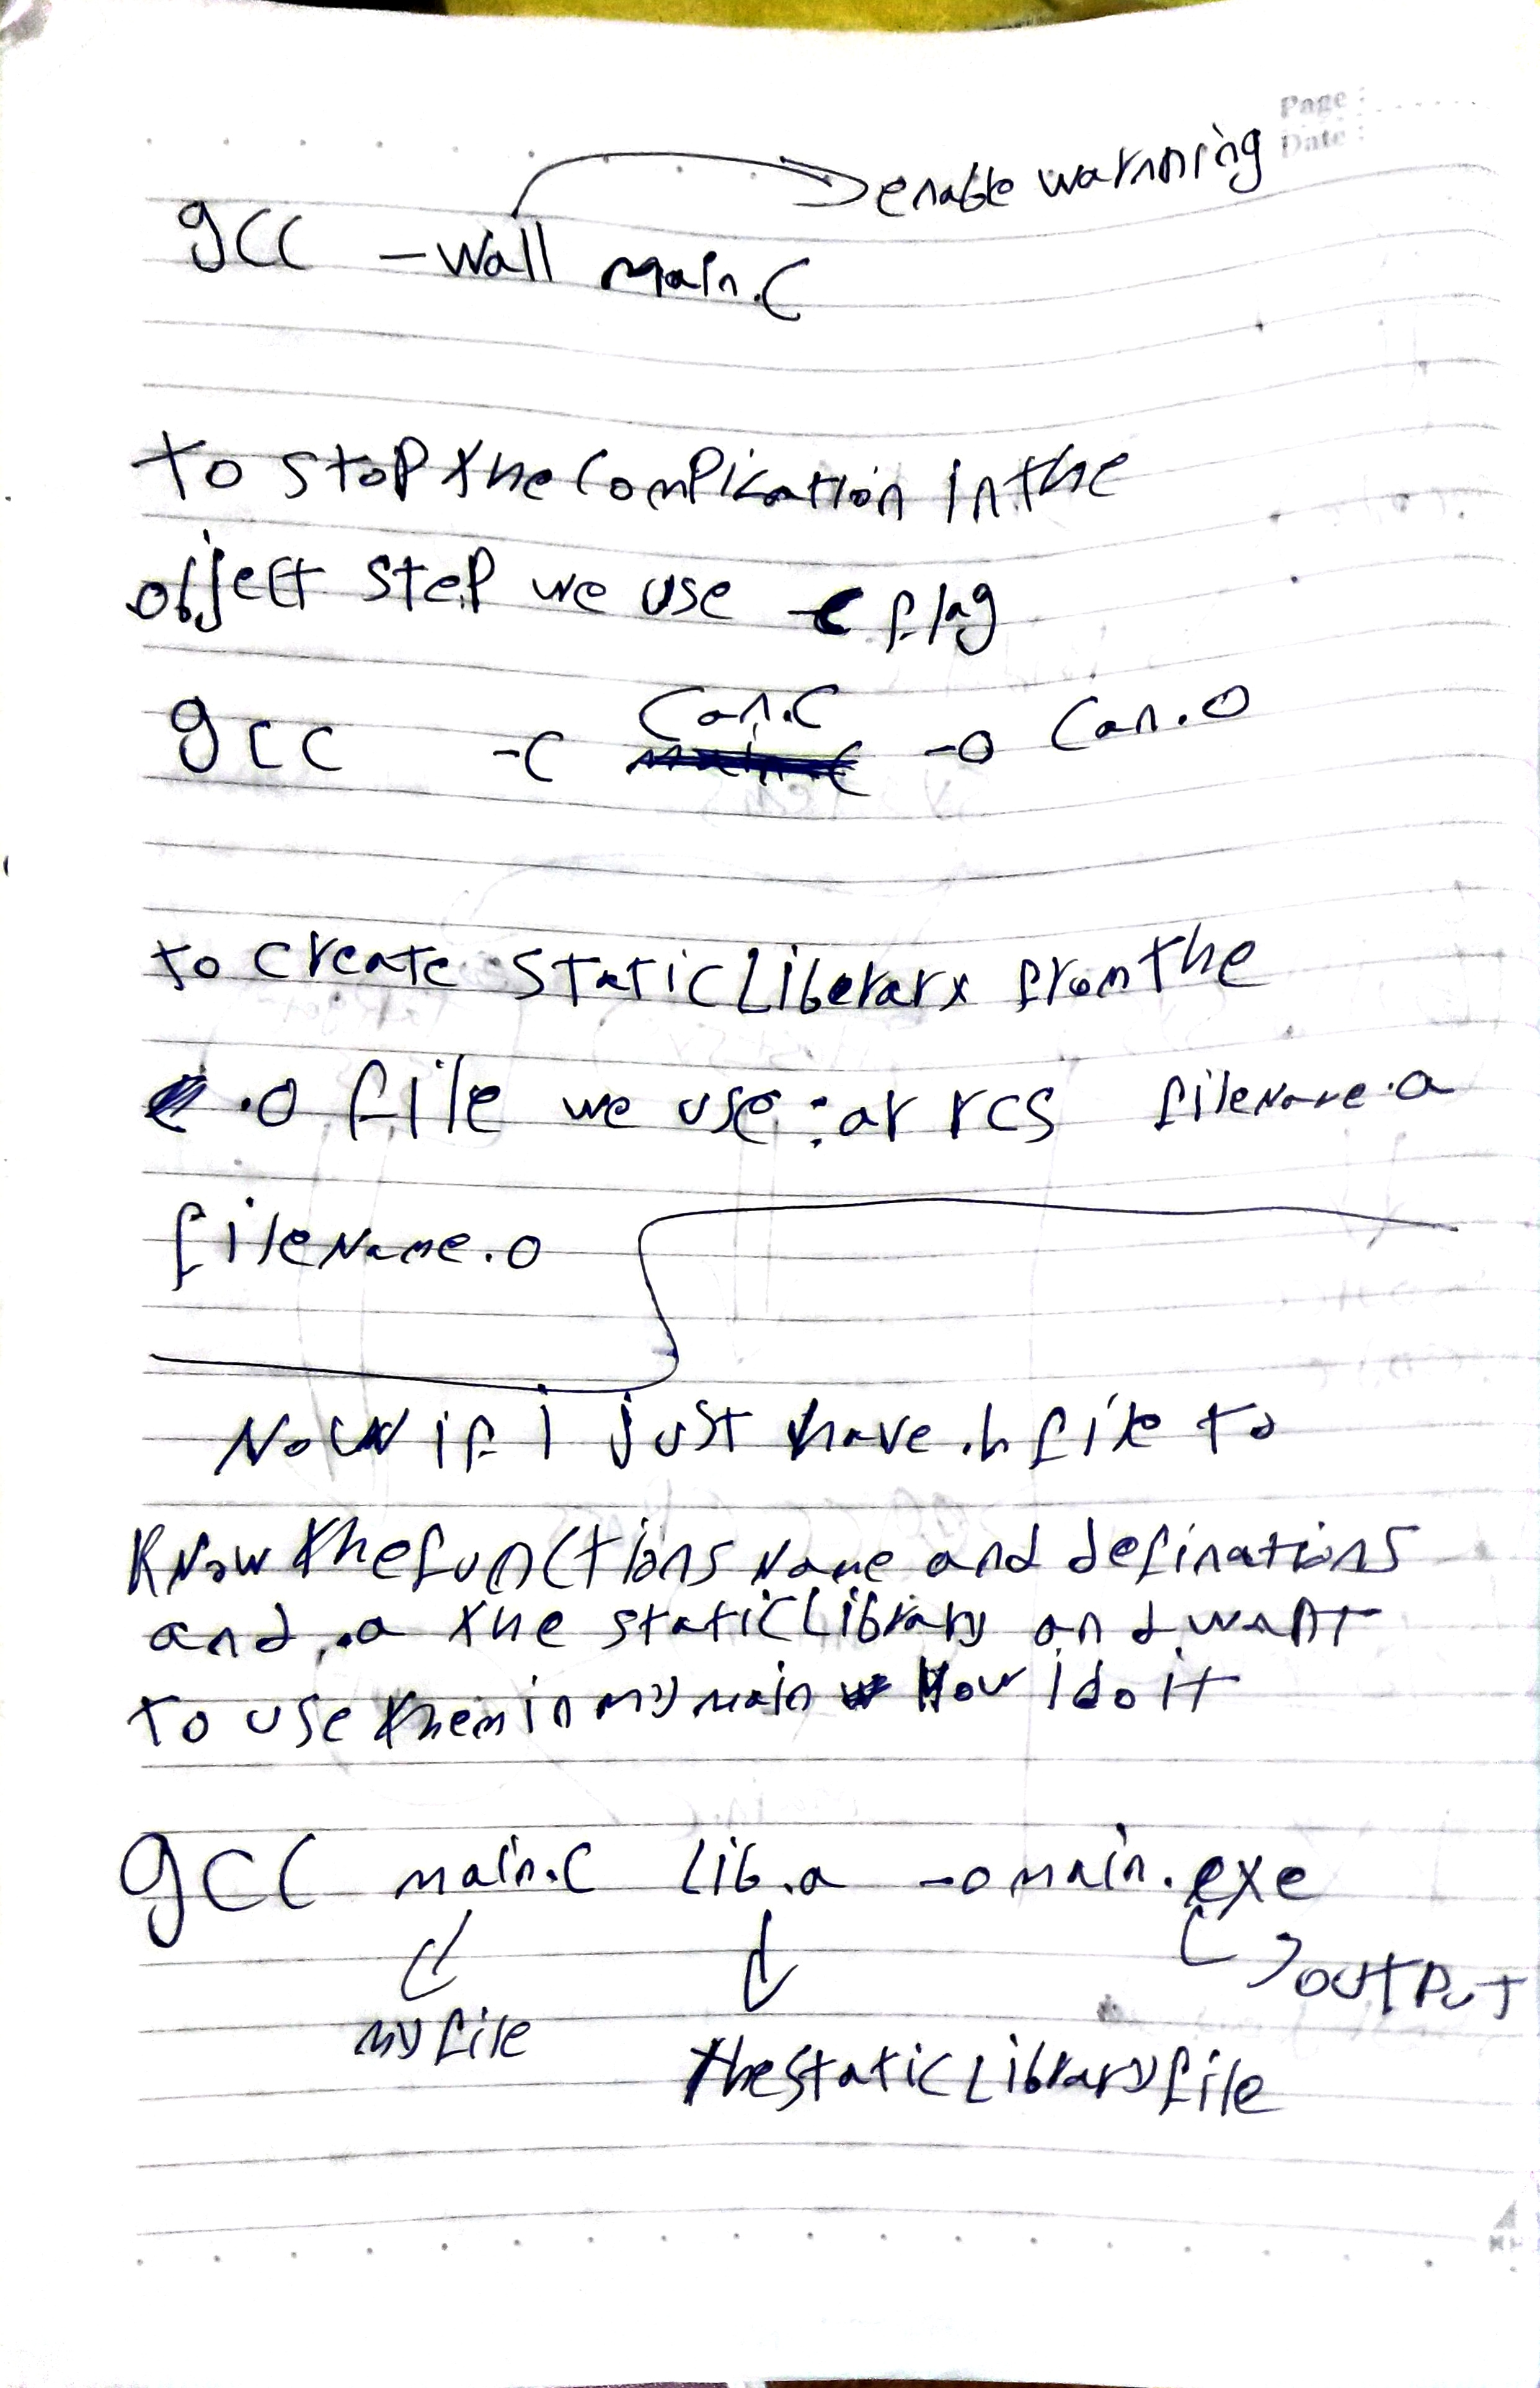 Page :
Date :
enable warnning
gcc -Wall main.c
to stop the compication in the
object step we use -c flag
gcc -c Can.c -o Can.o
to create static Liberary from the
.o file we use : ar rcs fileName.a
fileName.o
Now if I just have .h file to
know the functions Name and definations
and .a the static Library and want
to use them in my main How I do it
gcc main.c Lib.a -o main.exe
output
my file
the static Library file